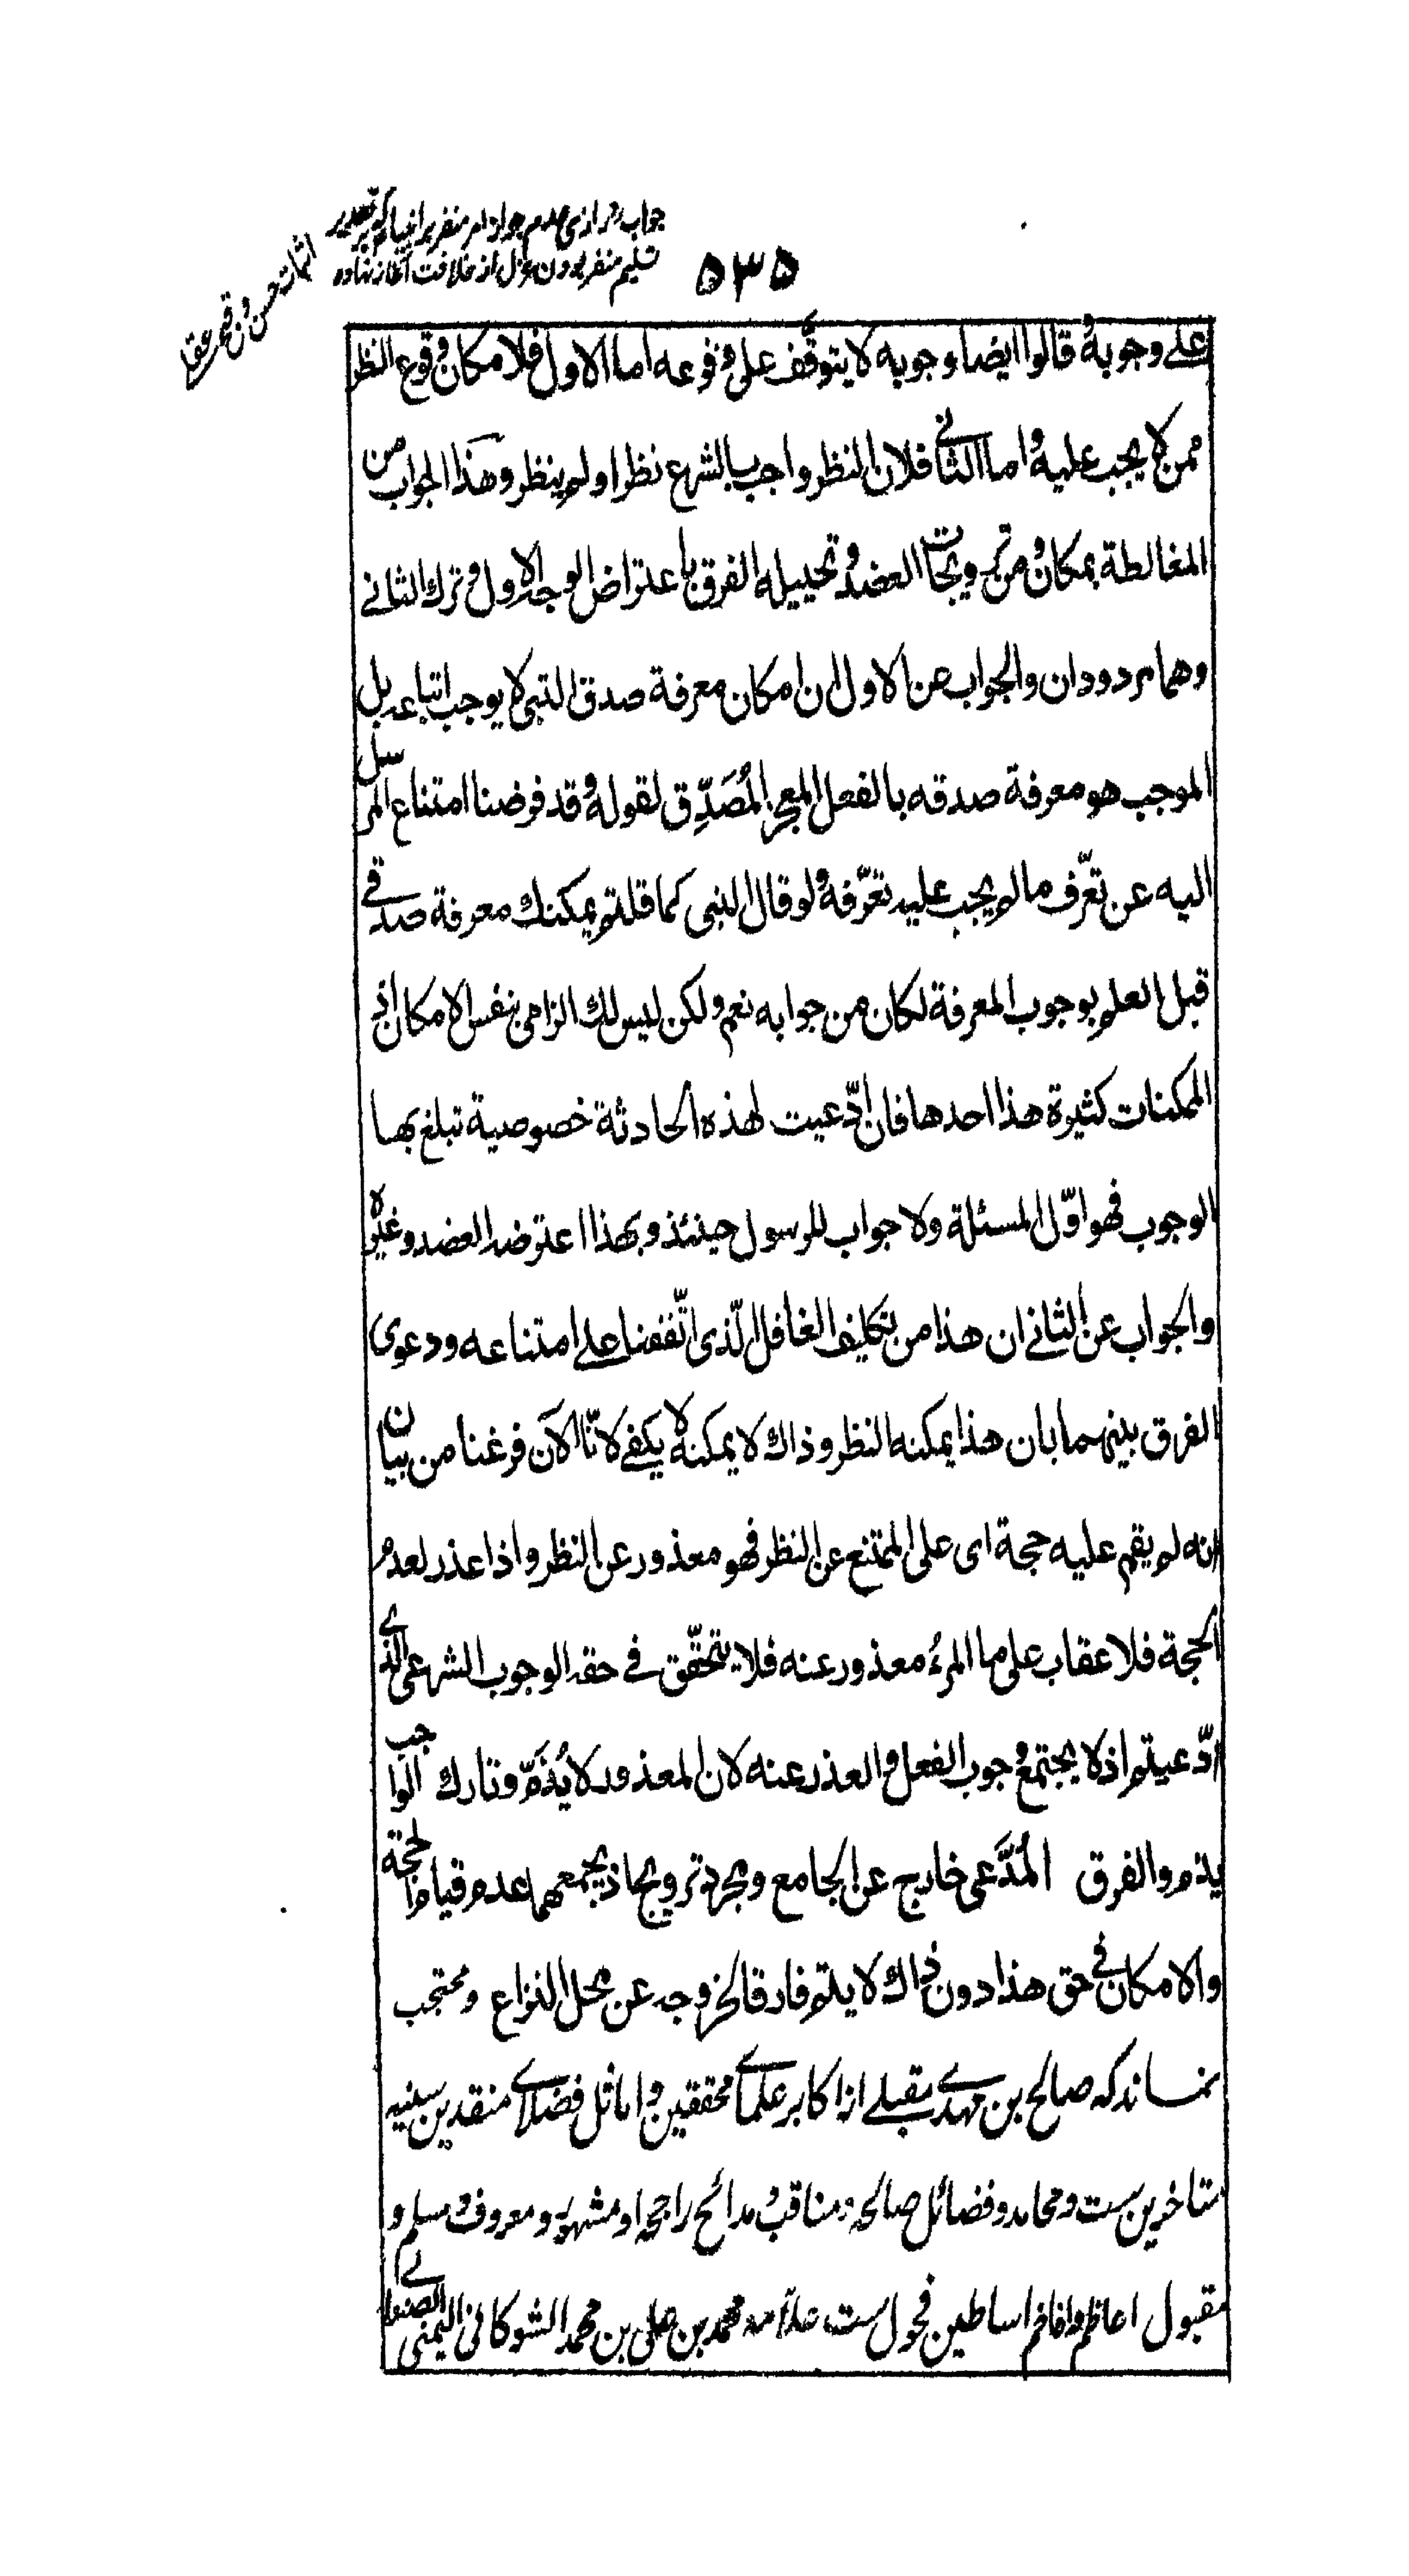 جواب رازی عدم جواز امر منفر بر انبیا که بر تقدیر
تسلیم منفر بودن عزل از خلافت آغاز نهاده
۵۳۵
اثبات حسن و قبح عقلی
علے وجوبه وقالوا ایضا وجوبه لا یتوقّف علی وقوعه اما الاول فلامکان وقوع النظر
ممن لا یجب علیه واما الثانے فلان النظر واجب بالشرع نظرا ولم ینظر وهذا الجواب من
المغالطة بمکان ومن ترویجات العضد وتخییله الفرق باعتراض الوجه الاول وترک الثانے
وهما مردودان والجواب عن الاول ان امکان معرفة صدق النبی لا یوجب اتباعه بل
الموجب هو معرفة صدقه بالفعل المعجز المُصَدِّق لقوله وقد فرضنا امتناع المرسل
الیه عن تعّرف ما لم یجب علیه تعرّفه ولو قال النبی کما قلتم یمکنک معرفة صدقے
قبل العلم بوجوب المعرفة لکان من جوابه نعم ولکن لیس لک الزامی بنفس الامکان اذ
الممکنات کثیرة هذا احدها فان ادّعیت لهذه الحادثة خصوصیة تبلغ بها
الوجوب فهو اوّل المسئلة ولا جواب للرسول حینئذ وبهذا اعترضه العضد وغیره
والجواب عن الثانے ان هذا من تکلیف الغافل الّذی اتّفقنا علے امتناعه ودعوی
الفرق بینهما بان هذا یمکنه النظر وذاک لا یمکنه لا یکفے لانّا الآن فرغنا من بیان
انه لم یقم علیه حجة ای علی الممتنع عن النظر فهو معذور عن النظر واذا عذر لعدم
الحجة فلا عقاب علی ما المرءُ معذور عنه فلا یتحقّق فے حقه الوجوب الشرعی الذی
ادّعیتم اذ لا یجتمع وجوب الفعل والعذر عنه لان المعذور لا یُذَمّ وتارک الواجب
یذم والفرق المُدَّعی خارج عن الجامع ومجرد ترویج اذ یجمعهما عدم قیام الحجة
والامکان فی حق هذا دون ذاک لا یلتم فارقا لخروجه عن محل النزاع ومحتجب
نماند که صالح بن مهدے مقبلے از اکابر علماے محققین و اماثل فضلاے منقدین سنیه
متاخرین ست و محامد و فضائل صالحه و مناقب و مدائح راجحه او مشهور و معروف و مسلم و
مقبول اعاظم و افاخم اساطین فحول ست علاّمه محمد بن علی بن محمد الشوکانی الیمنی الصنعانے